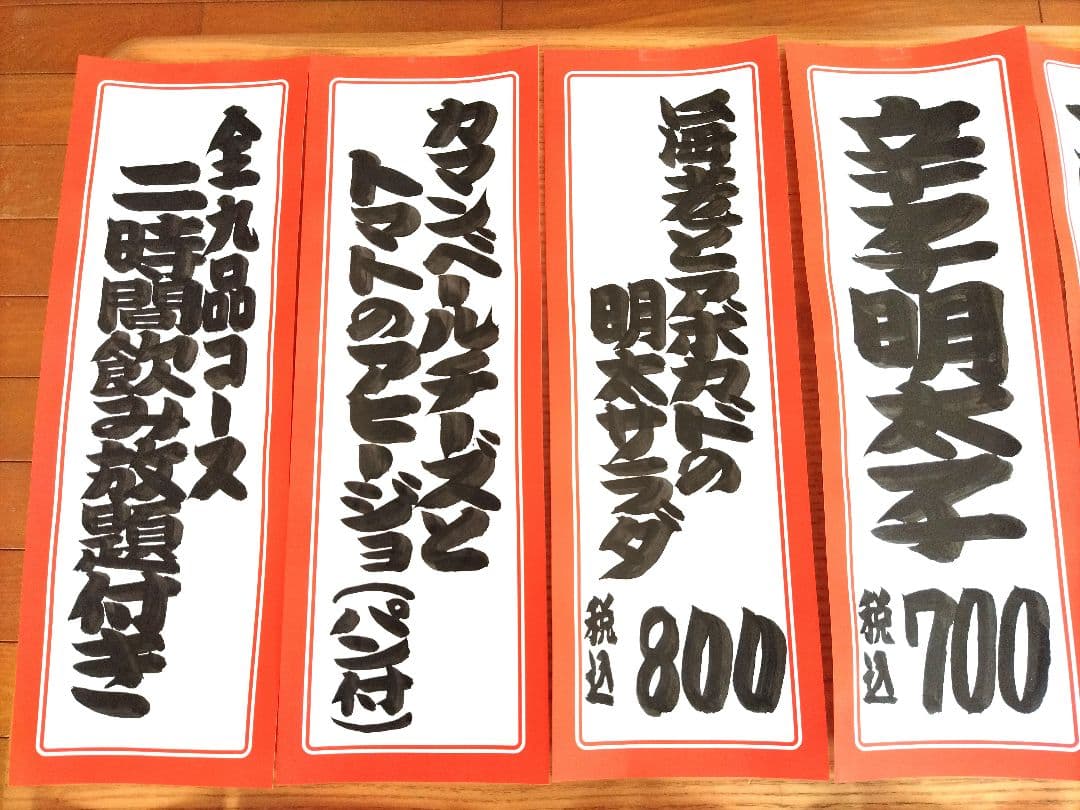 辛子明太子
税込
700
海老とアボカドの
明太サラダ
税込
800
カマンベールチーズと
トマトのアヒージョ(パン付)
全九品コース
二時間飲み放題付き